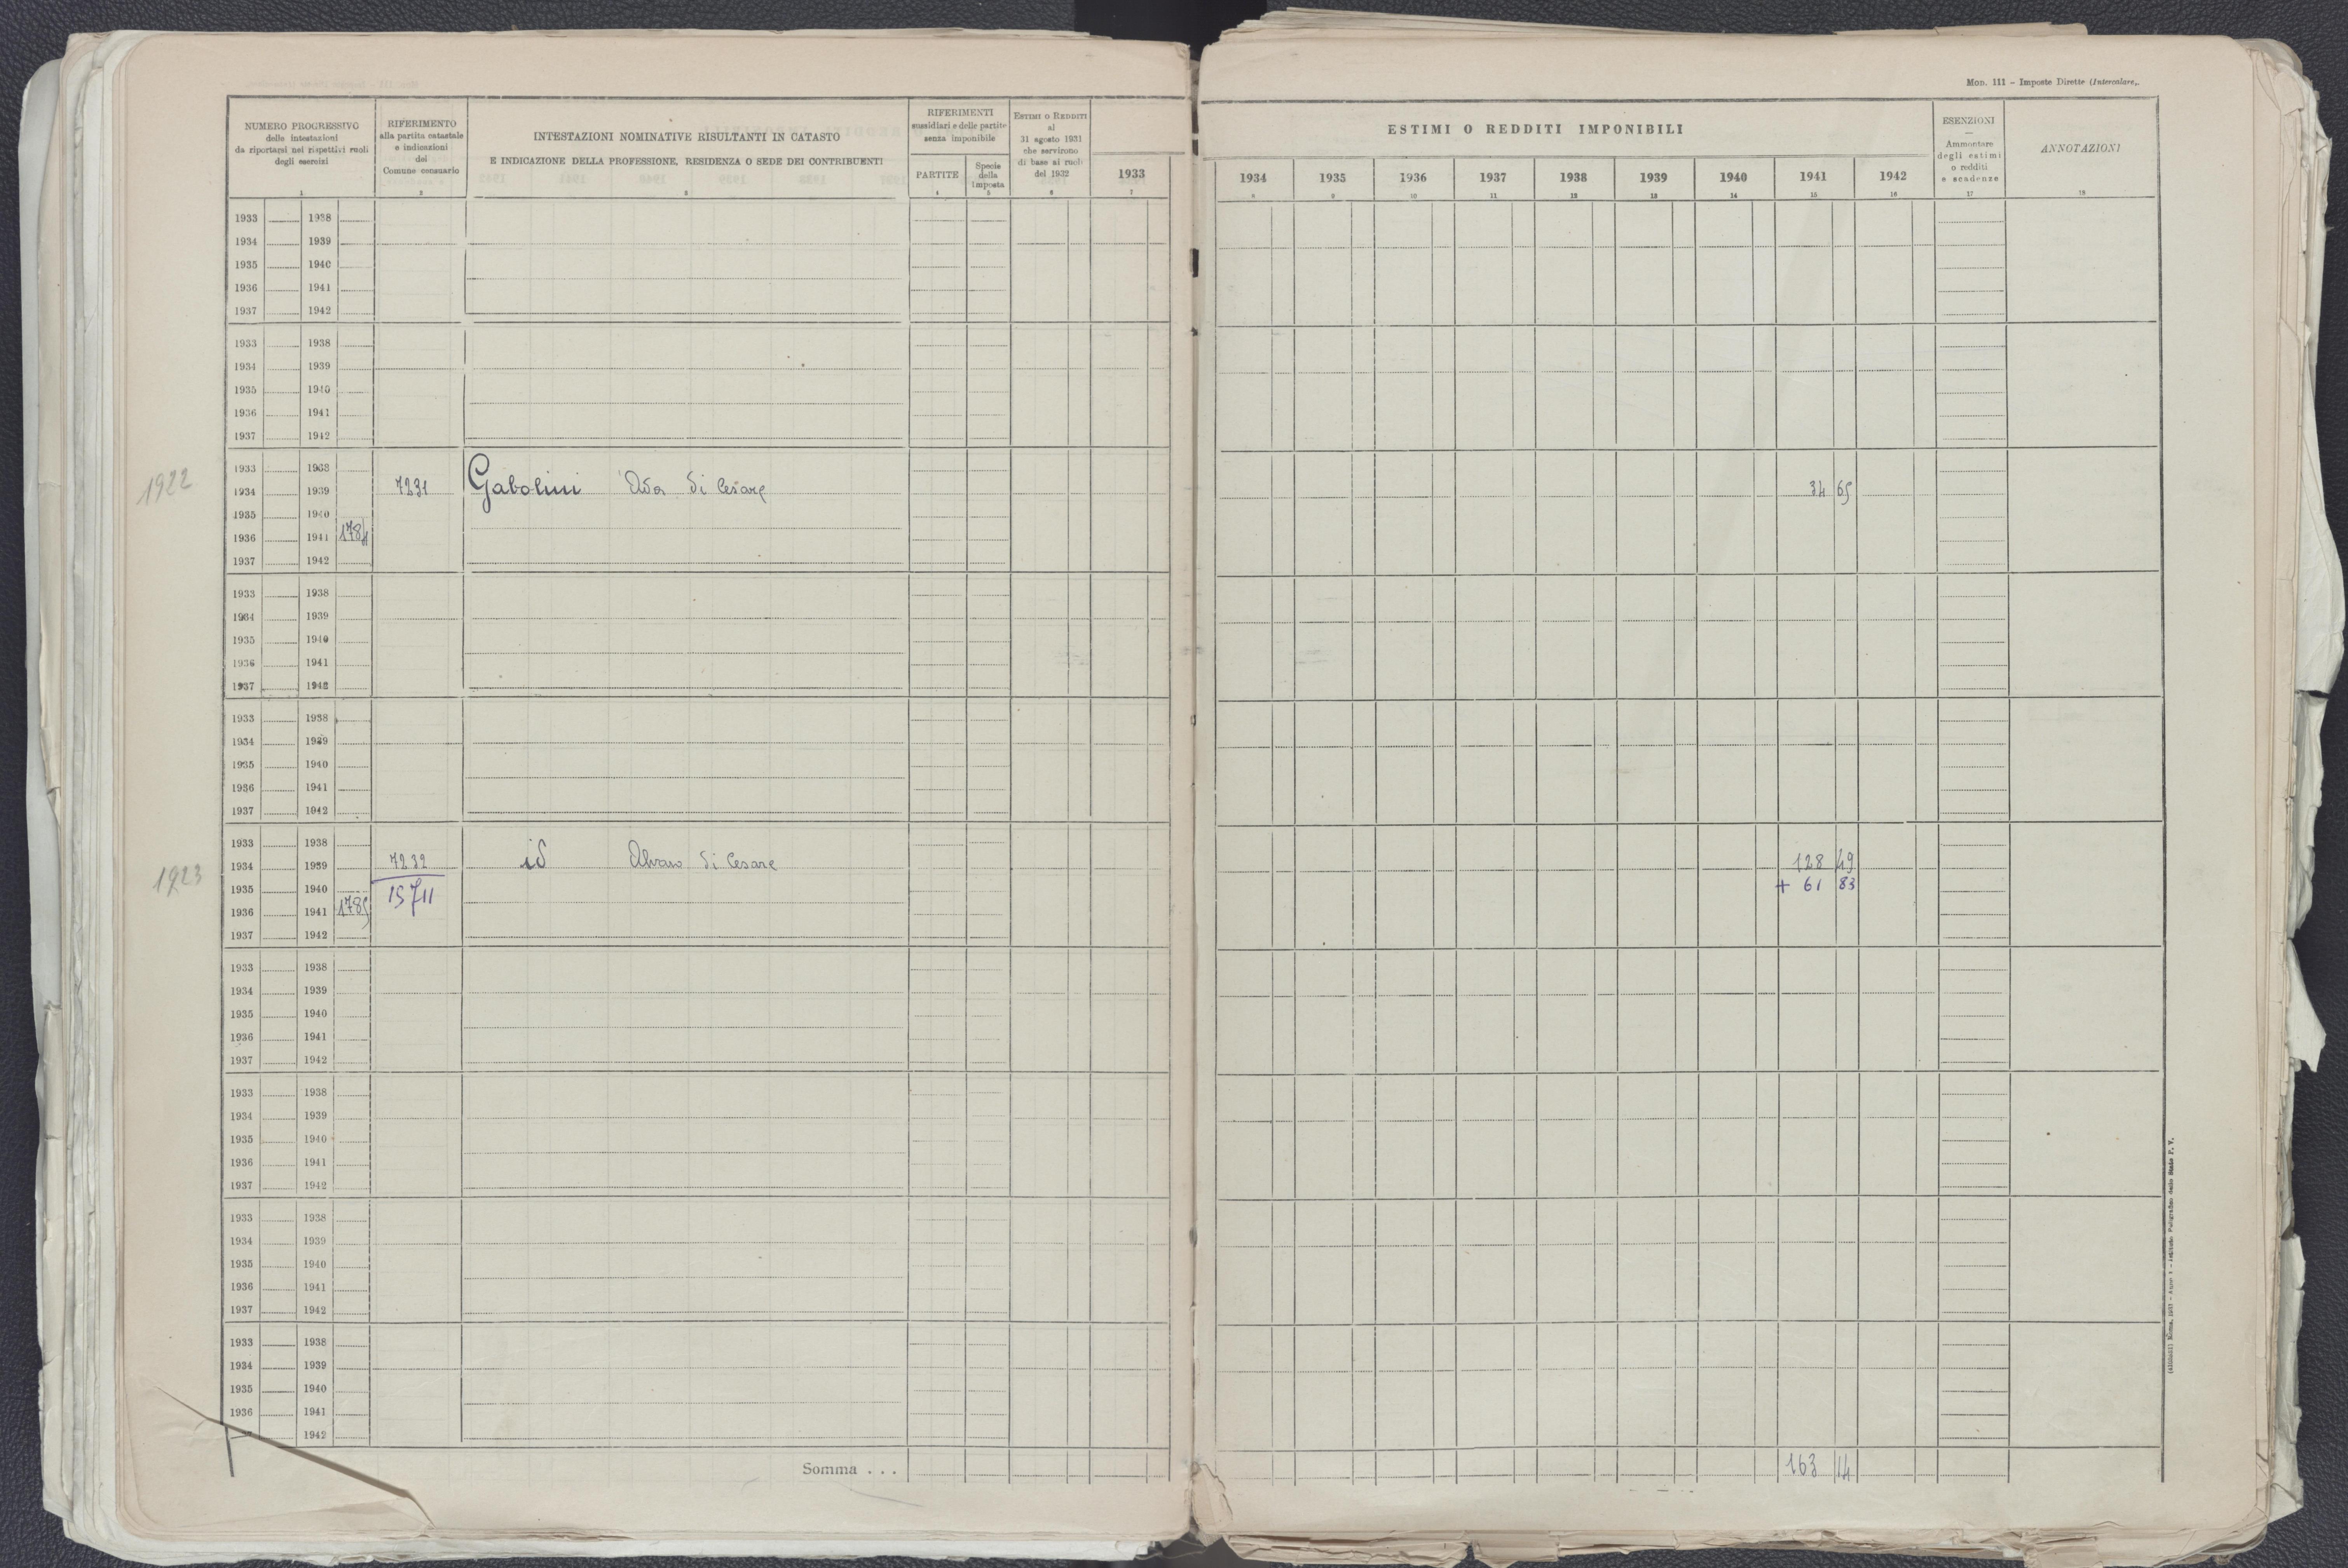 Mod. 111 - Imposte Dirette (Intercalare).
NUMERO PROGRESSIVO
delle intestazioni
da riportarsi nei rispettivi ruoli
degli esercizi
1
RIFERIMENTO
alla partita catastale
e indicazioni
del
Comune censuario
2
INTESTAZIONI NOMINATIVE RISULTANTI IN CATASTO
E INDICAZIONE DELLA PROFESSIONE, RESIDENZA O SEDE DEI CONTRIBUENTI
3
RIFERIMENTI
sussidiari e delle partite
senza imponibile
PARTITE
4
Specie
della
imposta
5
ESTIMI O REDDITI
al
31 agosto 1931
che servirono
di base ai ruoli
del 1932
6
1933
7
ESTIMI O REDDITI IMPONIBILI
1934 1935 1936 1937 1938 1939 1940 1941 1942
8 9 10 11 12 13 14 15 16
ESENZIONI
—
Ammontare
degli estimi
o redditi
e scadenze
17
ANNOTAZIONI
18
1933 1938
1934 1939
1935 1940
1936 1941
1937 1942
1933 1938
1934 1939
1935 1940
1936 1941
1937 1942
1922
1933 1938
1934 1939 7231 Gabolini Ada di Cesare 34 65
1935 1940
1936 1941 1784
1937 1942
1933 1938
1934 1939
1935 1940
1936 1941
1937 1942
1933 1938
1934 1939
1935 1940
1936 1941
1937 1942
1923
1933 1938
1934 1939 7232 id Alvaro di Cesare 128 49
1935 1940 15711 + 61 83
1936 1941 1785
1937 1942
1933 1938
1934 1939
1935 1940
1936 1941
1937 1942
1933 1938
1934 1939
1935 1940
1936 1941
1937 1942
1933 1938
1934 1939
1935 1940
1936 1941
1937 1942
1933 1938
1934 1939
1935 1940
1936 1941
1942
Somma . . . 163 14